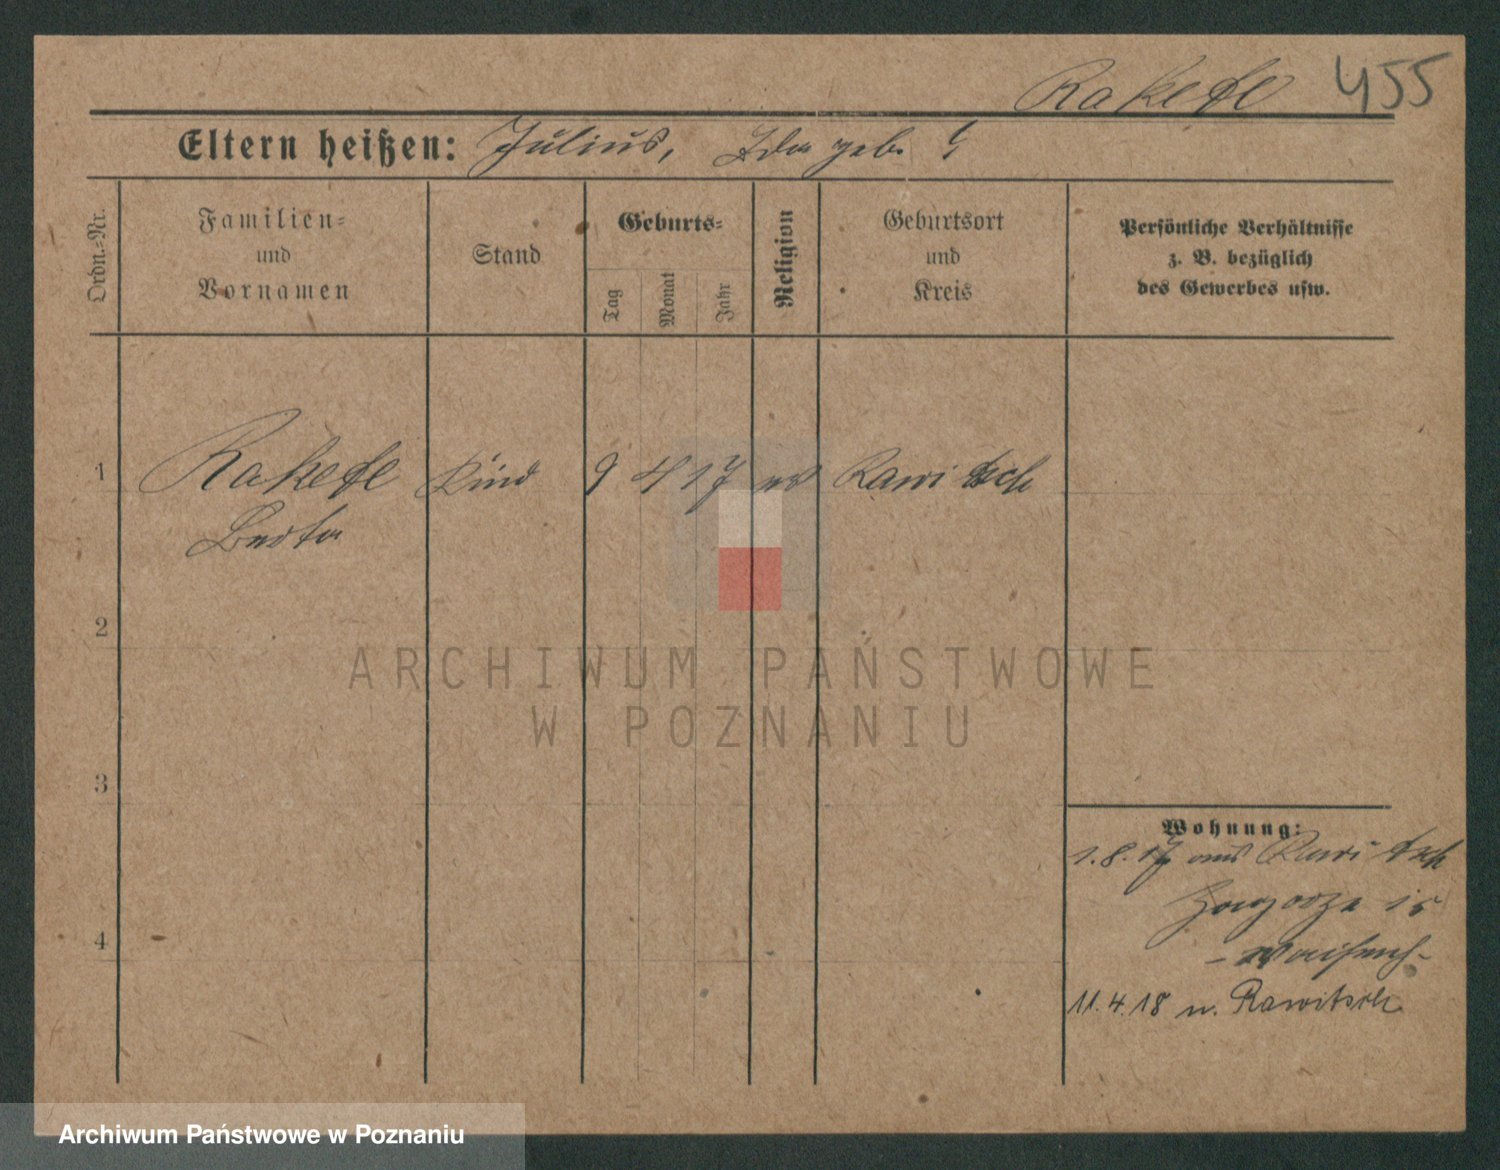 Rakete 455
Eltern heißen: Julius, Ida geb. ?
Ordn.-Nr.
Familien-
und
Vornamen
Stand
Geburts-
Tag
Monat
Jahr
Religion
Geburtsort
und
Kreis
Persönliche Verhältnisse
z. B. bezüglich
des Gewerbes usw.
1 Rakete Kind 9 4 17 ev Rawitsch
Berta
2
ARCHIWUM PAŃSTWOWE
W POZNANIU
3
Wohnung:
1.8.17 aus Rawitsch
15
4
- Waisenh -
11.4.18 n. Rawitsch
Archiwum Państwowe w Poznaniu